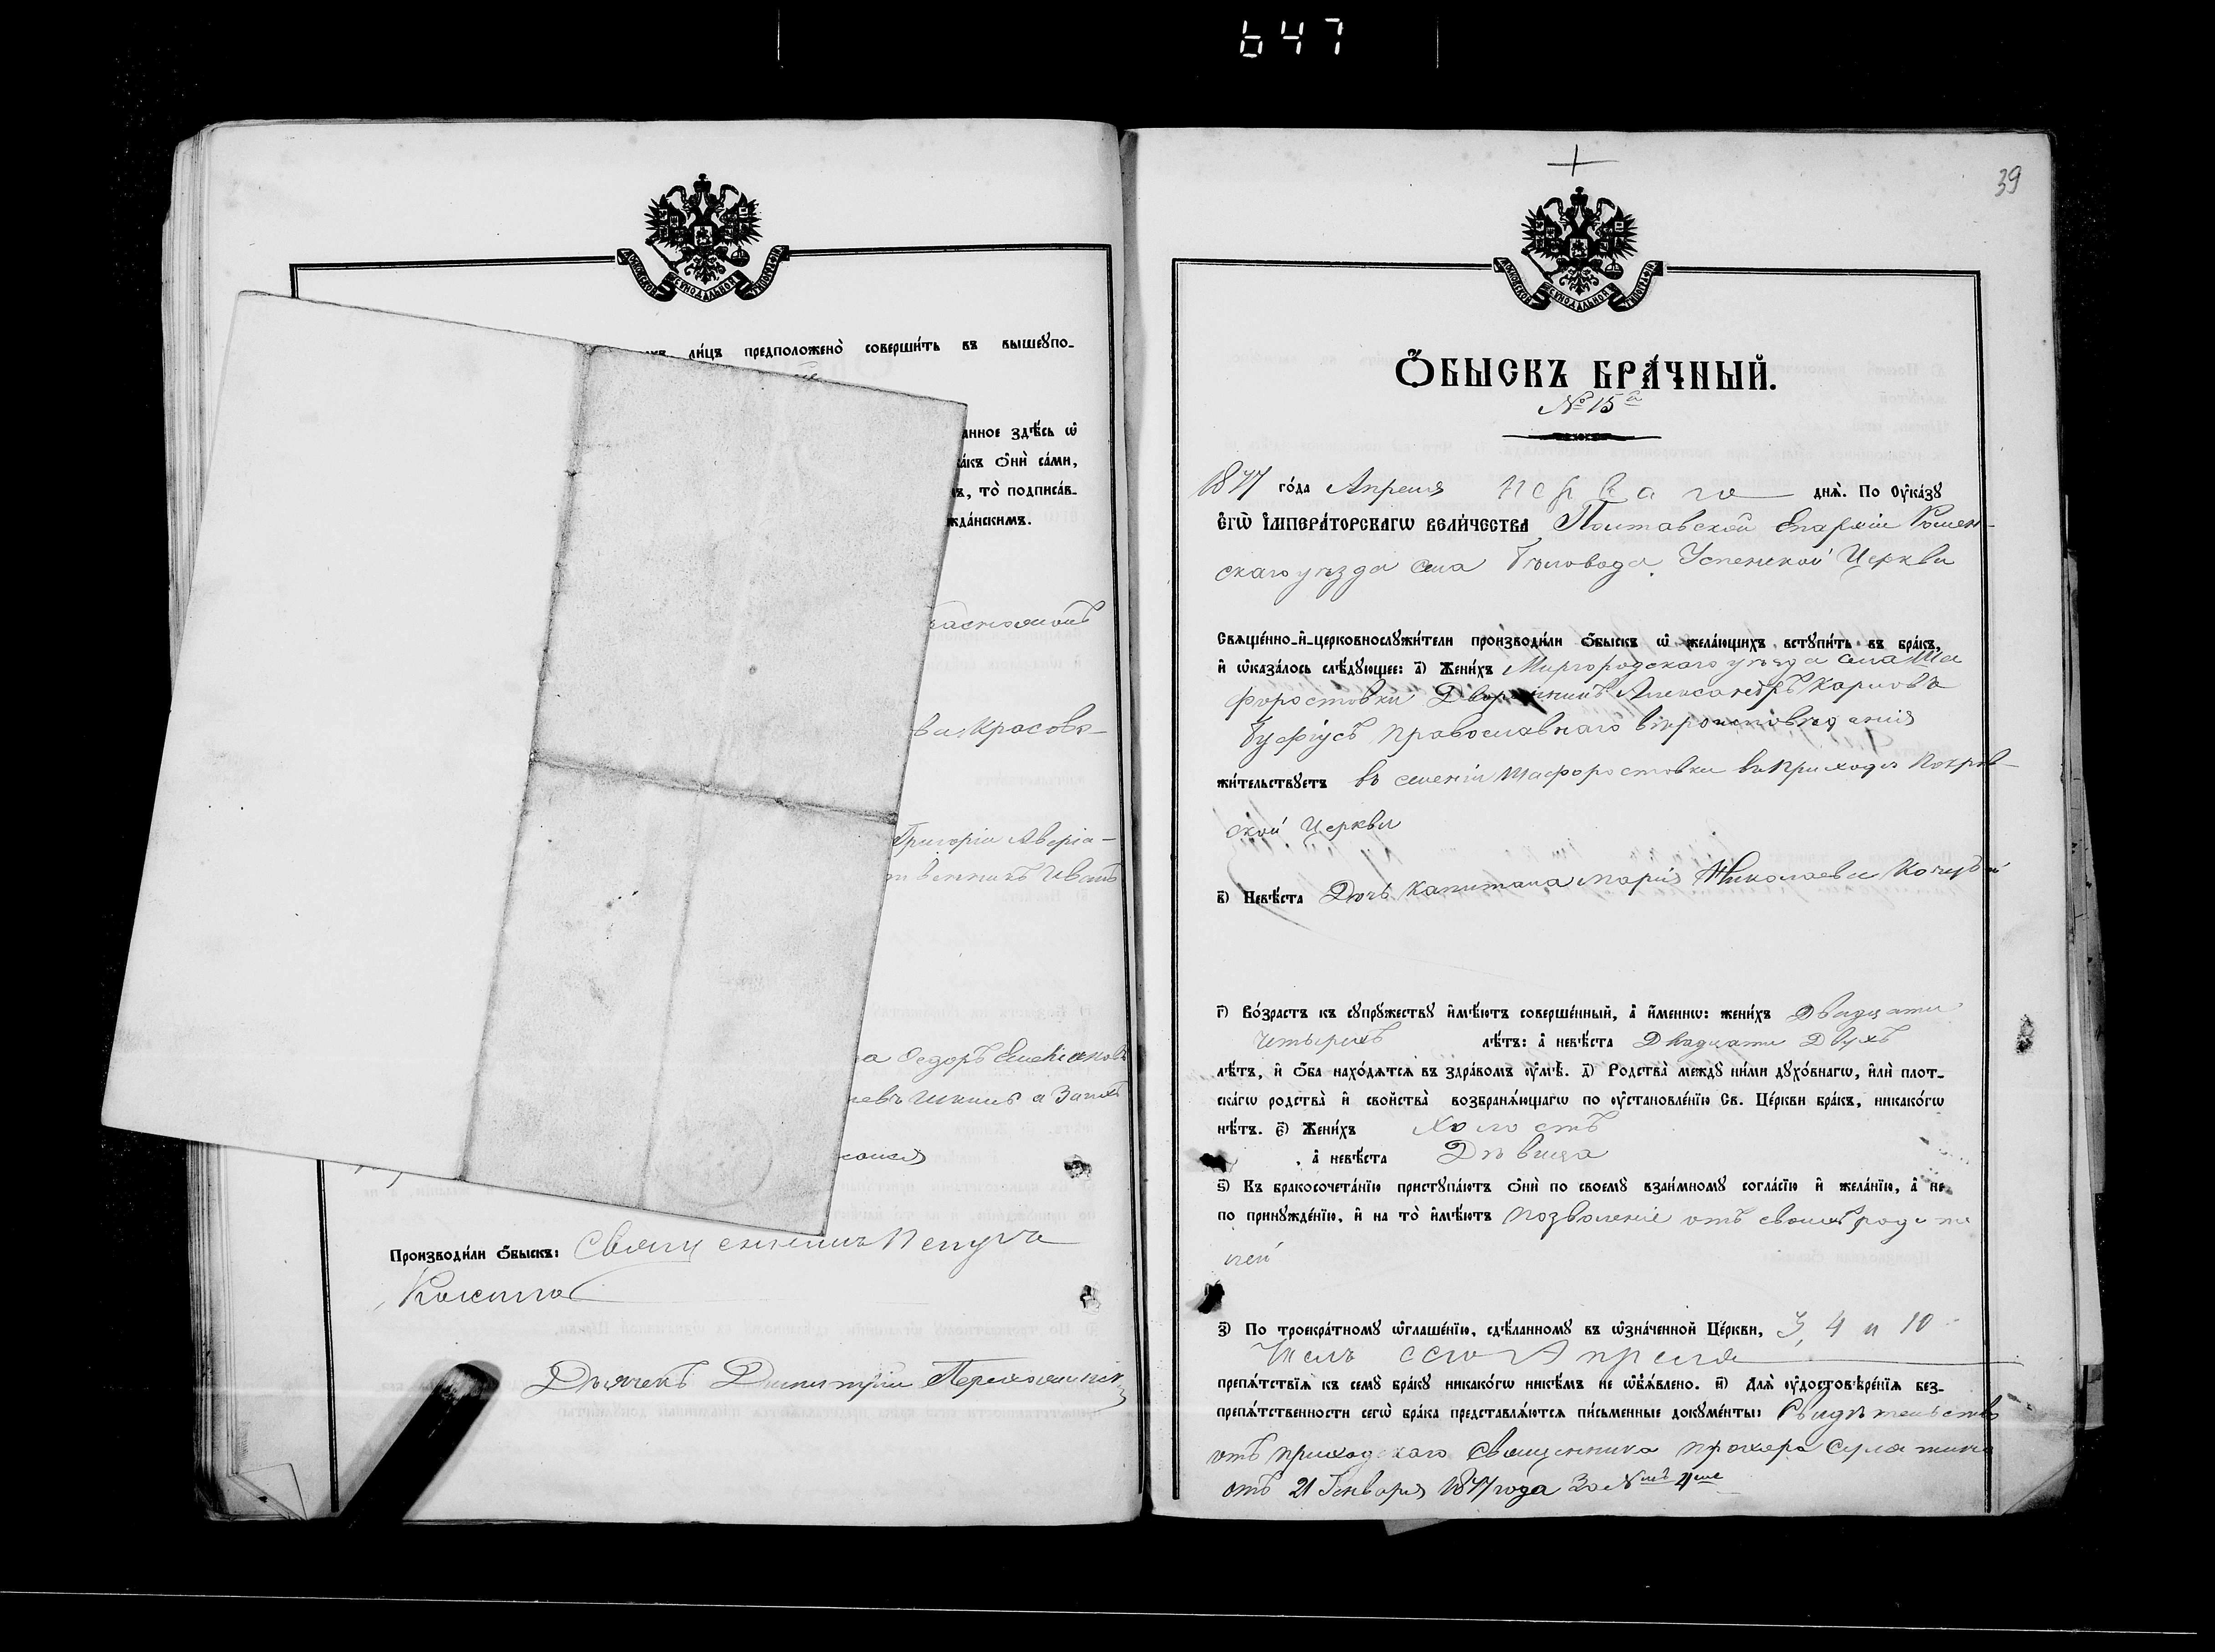 647
39
МОСКОВСКОЙ СѴНОДАЛЬНОЙ ТИПОГРАФІИ
лицъ предположено совершить въ вышеупо-
анное здѣсь ѿ
акъ ѻни сами,
ъ, то подписав-
жданскимъ.
ва Красовс-
Григоріи Аверіа-
твенникъ Иванъ
Производили ѻбыскъ: Священникъ
Дьячекъ Димитрій
МОСКОВСКОЙ СѴНОДАЛЬНОЙ ТИПОГРАФІИ
ѺБЫСКЪ БРАЧНЫЙ.
№ 15й
1877 года Апреля перваго дня. По Оуказу
ЕГѠ ІМПЕРАТОРСКАГѠ ВЕЛИЧЕСТВА Полтавской Епархіи Ромен-
скаго уѣзда села Бѣловода Успенской Церкви
Священно-и-церковнослужители производили ѻбыскъ ѡ желающихъ вступить въ бракъ,
и ѡказалось слѣдующее: а) Женихъ Миргородскаго уѣзда села Ша
форостовки Дворянинъ Александръ Карповъ
православнаго вѣроисповѣданія
жительствуетъ въ селеніи Шафоростовки въ приходѣ Покров-
ской Церкви
в) Невѣста Дочь Капитана Марія Николаева Кочубей
г) Возрастъ къ супружеству имѣютъ совершенный, а именнѡ: женихъ Двадцати
Четырехъ лѣтъ: а невѣста Двадцати Двухъ
лѣтъ, и ѻба находятся въ здравомъ оумѣ. д) Родства между ними духовнагѡ, или плот-
скагѡ родства и свойства возбраняющагѡ по оустановленію Св. Церкви бракъ, никакогѡ
нѣтъ. е) Женихъ Холостъ
, а невѣста Дѣвица
ѕ) Къ бракосочетанію приступаютъ ѻни по своему взаимному согласію и желанію, а не
по принужденію, и на то имѣютъ позволеніе отъ своихъ родите
лей
з) По троекратному ѡглашенію, сдѣланному въ ѡзначенной Церкви, 3, 4 и 10
Числъ сего Апреля
препятствія къ сему браку никакогѡ никѣмъ не ѡбъявлено. и) Для оудостовѣренія без-
препятственности сегѡ брака представляются письменные документы: Свидѣтельство
отъ приходскаго Священника
отъ 21 Генваря 1877 года За №